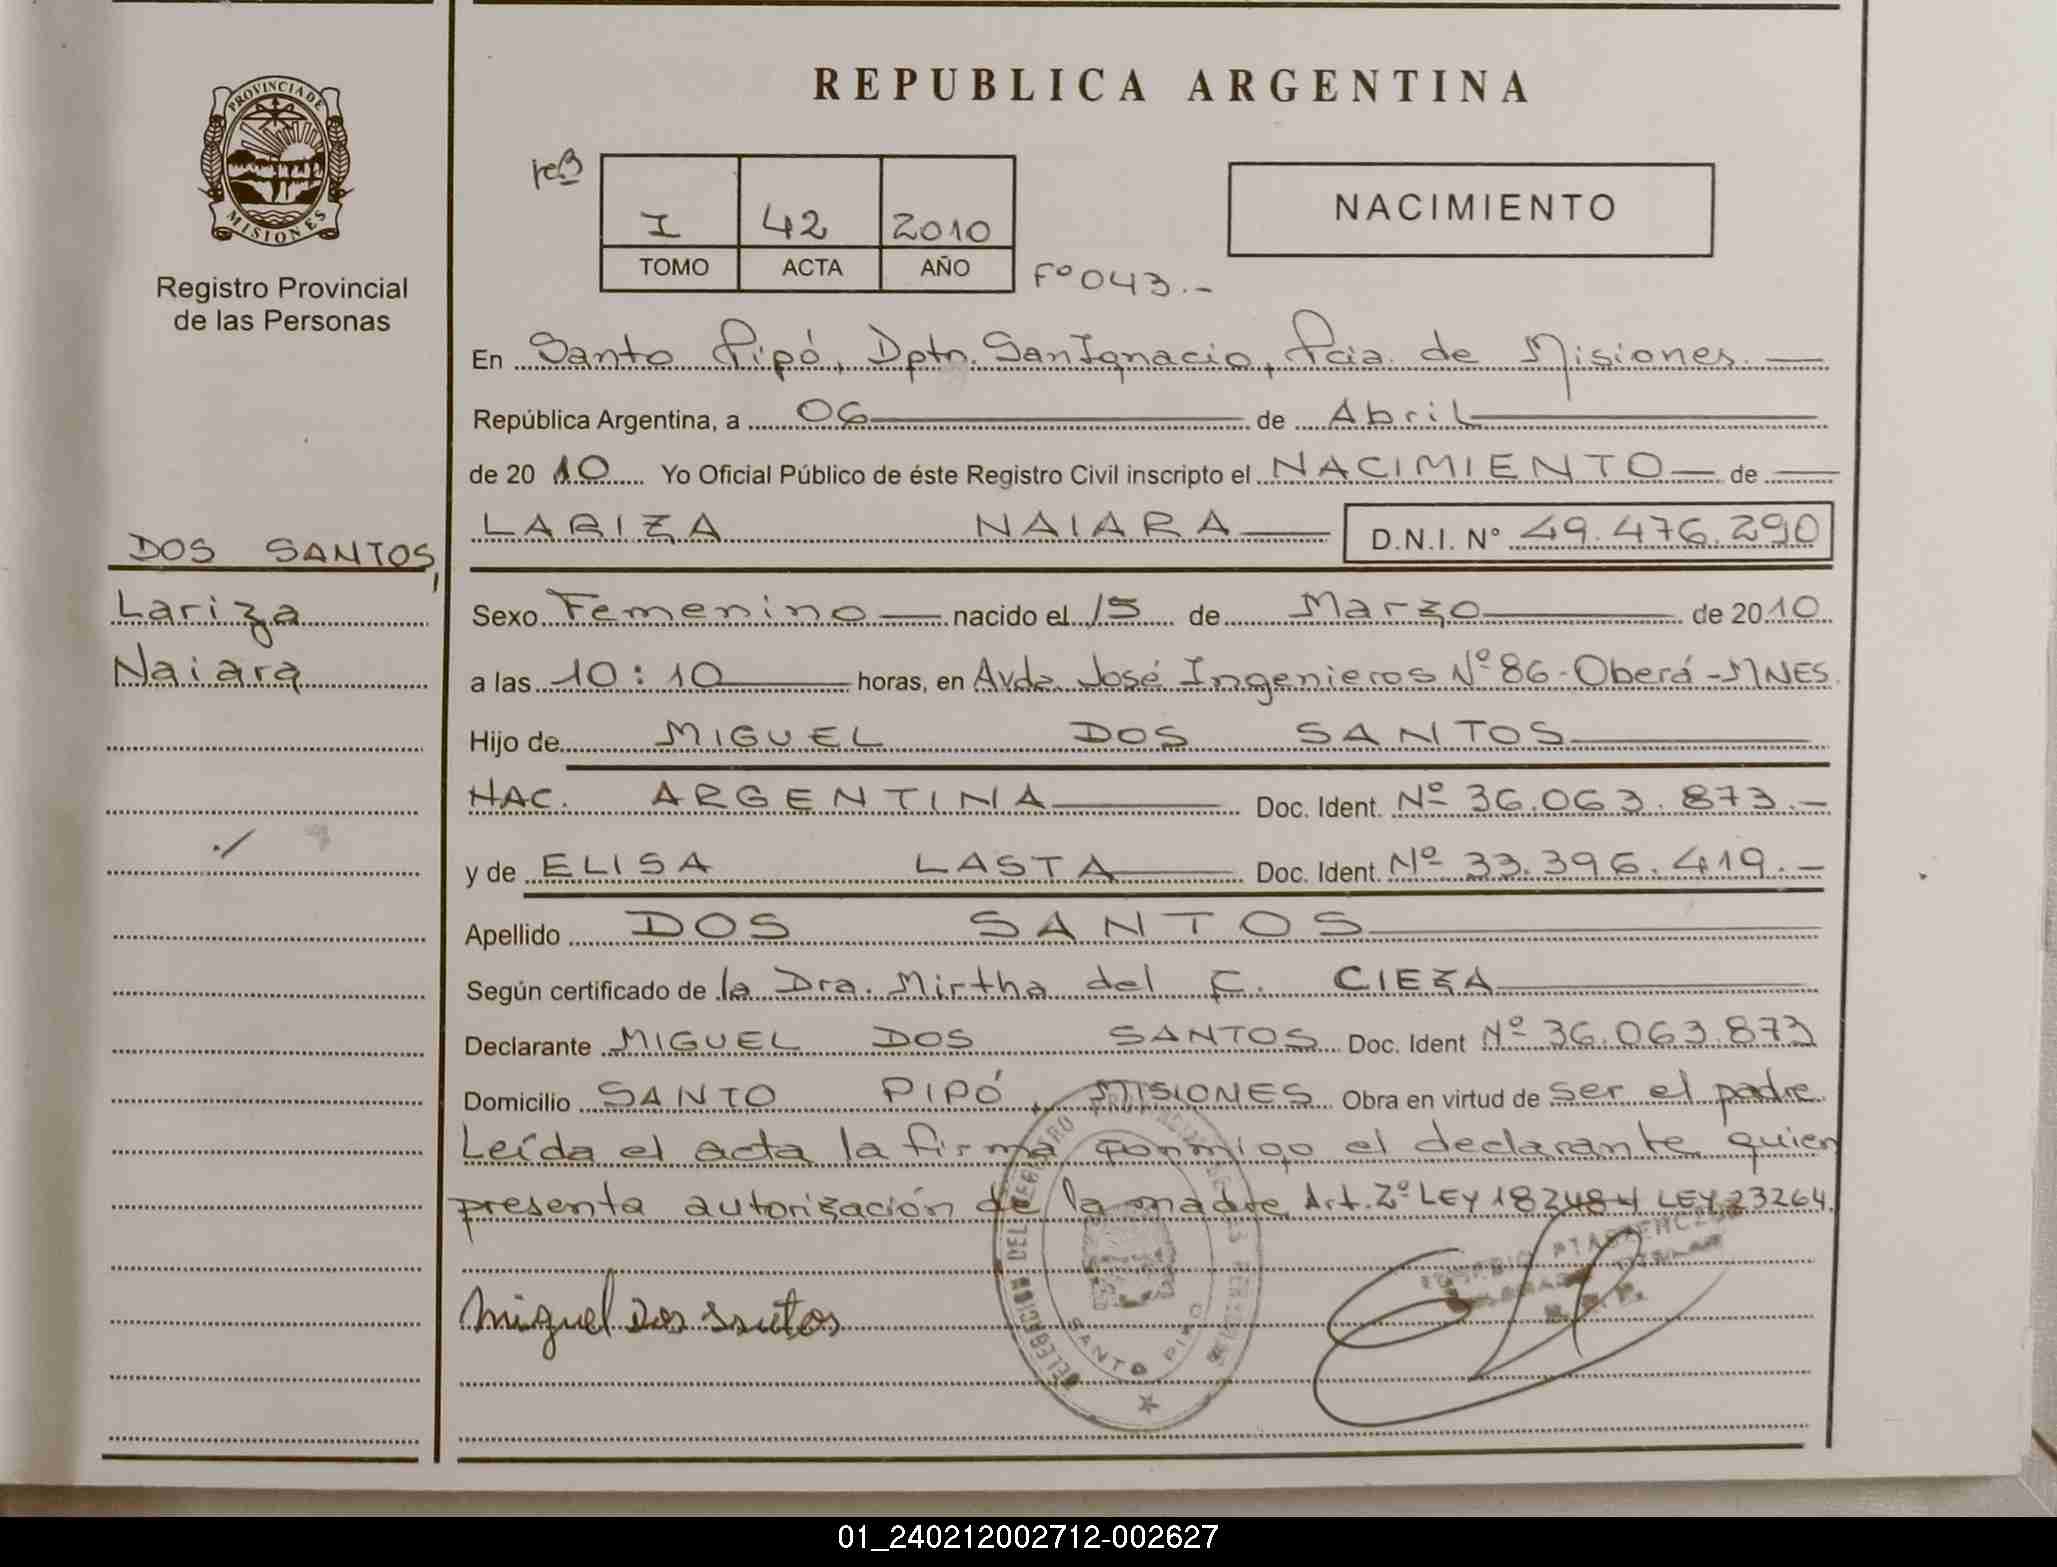 REPUBLICA ARGENTINA
PROVINCIA DE
MISIONES
Registro Provincial
de las Personas
I 42 2010
TOMO ACTA AÑO
Fº 043.-
NACIMIENTO
En Santo Pipó, Dpto. San Ignacio, Pcia. de Misiones.
República Argentina, a 06 de Abril
de 2010 Yo Oficial Público de éste Registro Civil inscripto el NACIMIENTO de
LARIZA NAIARA D.N.I. Nº 49.476.290
DOS SANTOS,
Lariza
Naiara
Sexo Femenino nacido el 15 de Marzo de 2010
a las 10:10 horas, en Avda. José Ingenieros Nº 86-Oberá-MNES.
Hijo de MIGUEL DOS SANTOS
NAC. ARGENTINA Doc. Ident. Nº 36.063.873.-
y de ELISA LASTA Doc. Ident. Nº 33.396.419.-
Apellido DOS SANTOS
Según certificado de la Dra. Mirtha del C. CIEZA
Declarante MIGUEL DOS SANTOS Doc. Ident Nº 36.063.873
Domicilio SANTO PIPÓ, MISIONES Obra en virtud de ser el padre
Leída el acta la firma conmigo el declarante quien
presenta autorización de la madre Art. 2º LEY 18248 Y LEY 23264.
Miguel Dos Santos
DELEGACION DEL REGISTRO PROVINCIAL DE LAS PERSONAS
SANTO PIPO
01_240212002712-002627